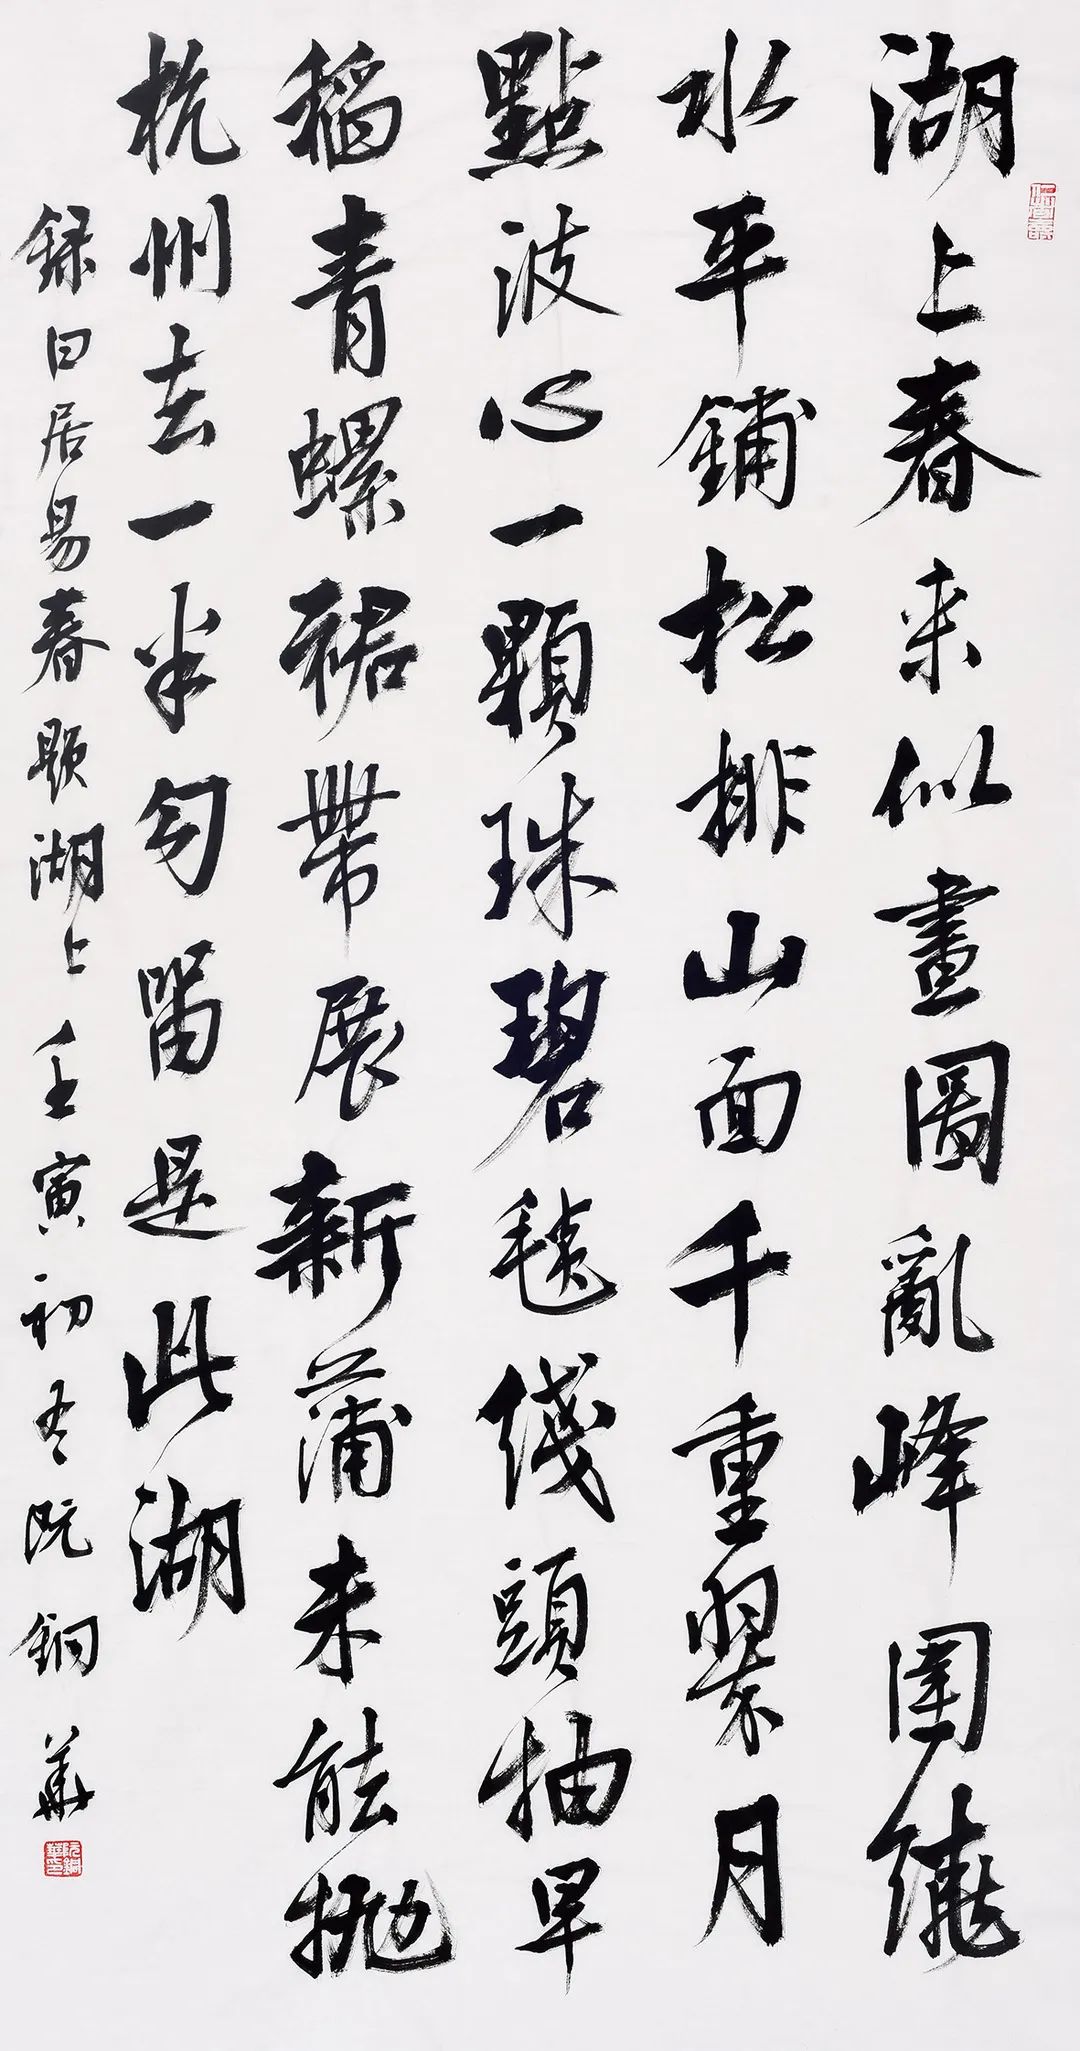 湖上春来似畫圖亂峰圍繞
水平鋪松排山面千重翠月
點波心一顆珠碧毯綫頭抽早
稻青螺裙帶展新蒲未能抛
杭州去一半勾留是此湖
録白居易春题湖上壬寅初冬阮銅華
阮銅華印